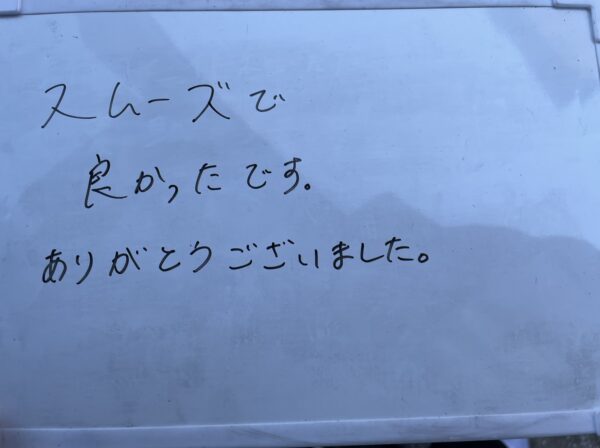 スムーズで
良かったです。
ありがとうございました。